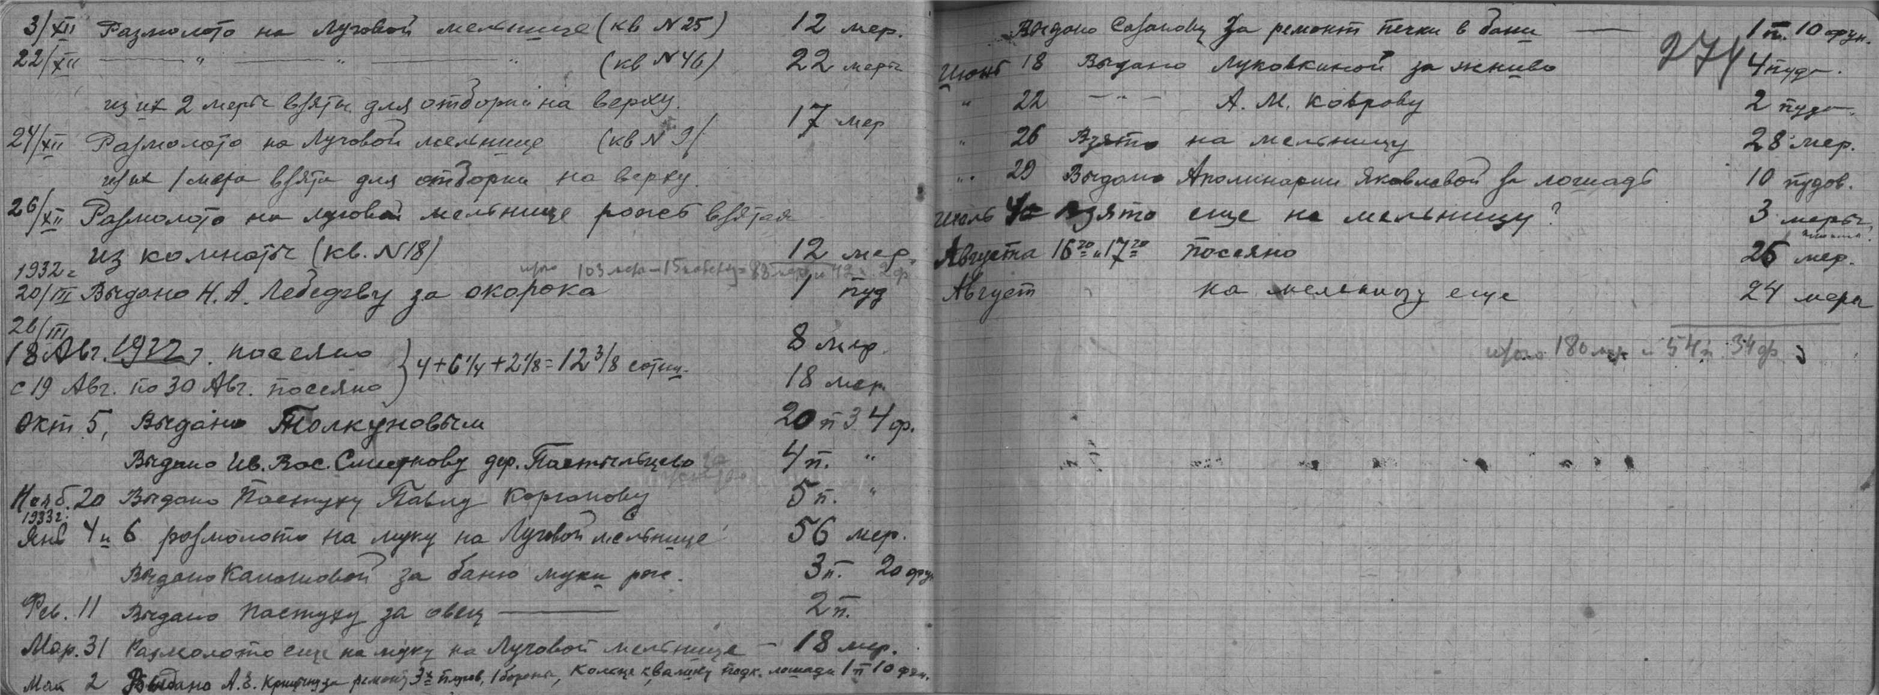 3/XII Размолото на Луговой мельнице (кв N 25) 12 мер.
22/XII — " — " — " (кв N 46) 22 меры
из их 2 меры взяты для отборки на верху.
24/XII Размолото на Луговой мельнице (кв N 9) 17 мер
из их 1 мера взята для отборки на верху.
26/XII Размолото на луговой мельнице рожь взятая
из комнаты (кв. N 18) 12 мер.
1932 г
20/III Выдано Н. А. Лебедеву за окорока 1 пуд
26/III
18 Авг. 1932 г. посеяно 8 мер
с 19 Авг. по 30 Авг. посеяно } 4+6 1/4+2 1/8=12 3/8 сотни. 18 мер.
Окт 5, Выдано Толкуновым 20 п 34 ф.
Выдано Ив. Вас. Смирнову дер. 4 п. "
Нояб. 20 Выдано Пастуху Павлу 5 п. "
1933 г.
Янв 4 и 6 размолото на муку на Луговой мельнице 56 мер.
Выдано за баню муки рж. 3 п. 20 фун
Фев. 11 Выдано пастуху за овец — 2 п.
Мар. 31 Размолото еще на муку на Луговой мельнице — 18 мер.
Май 2 Выдано А. за ремонт 3х плугов, 1 бороны, подк. лошади 1 п 10 фун.
Выдано за ремонт печки в бани — 1 п. 10 фун.
274
Июнь 18 Выдано Луковкиной за жниво 4 пуда.
" 22 — " — А. М. Коврову 2 пуда
" 26 Взято на мельницу 28 мер.
" 29 Выдано Аполинарии Яковлевой за лошадь 10 пудов.
Июль взято еще на мельницу? 3 меры
Августа 16го и 17го посеяно 26 мер.
Август на мельницу еще 24 меры
итого 180 мер и 54 п. 34 ф